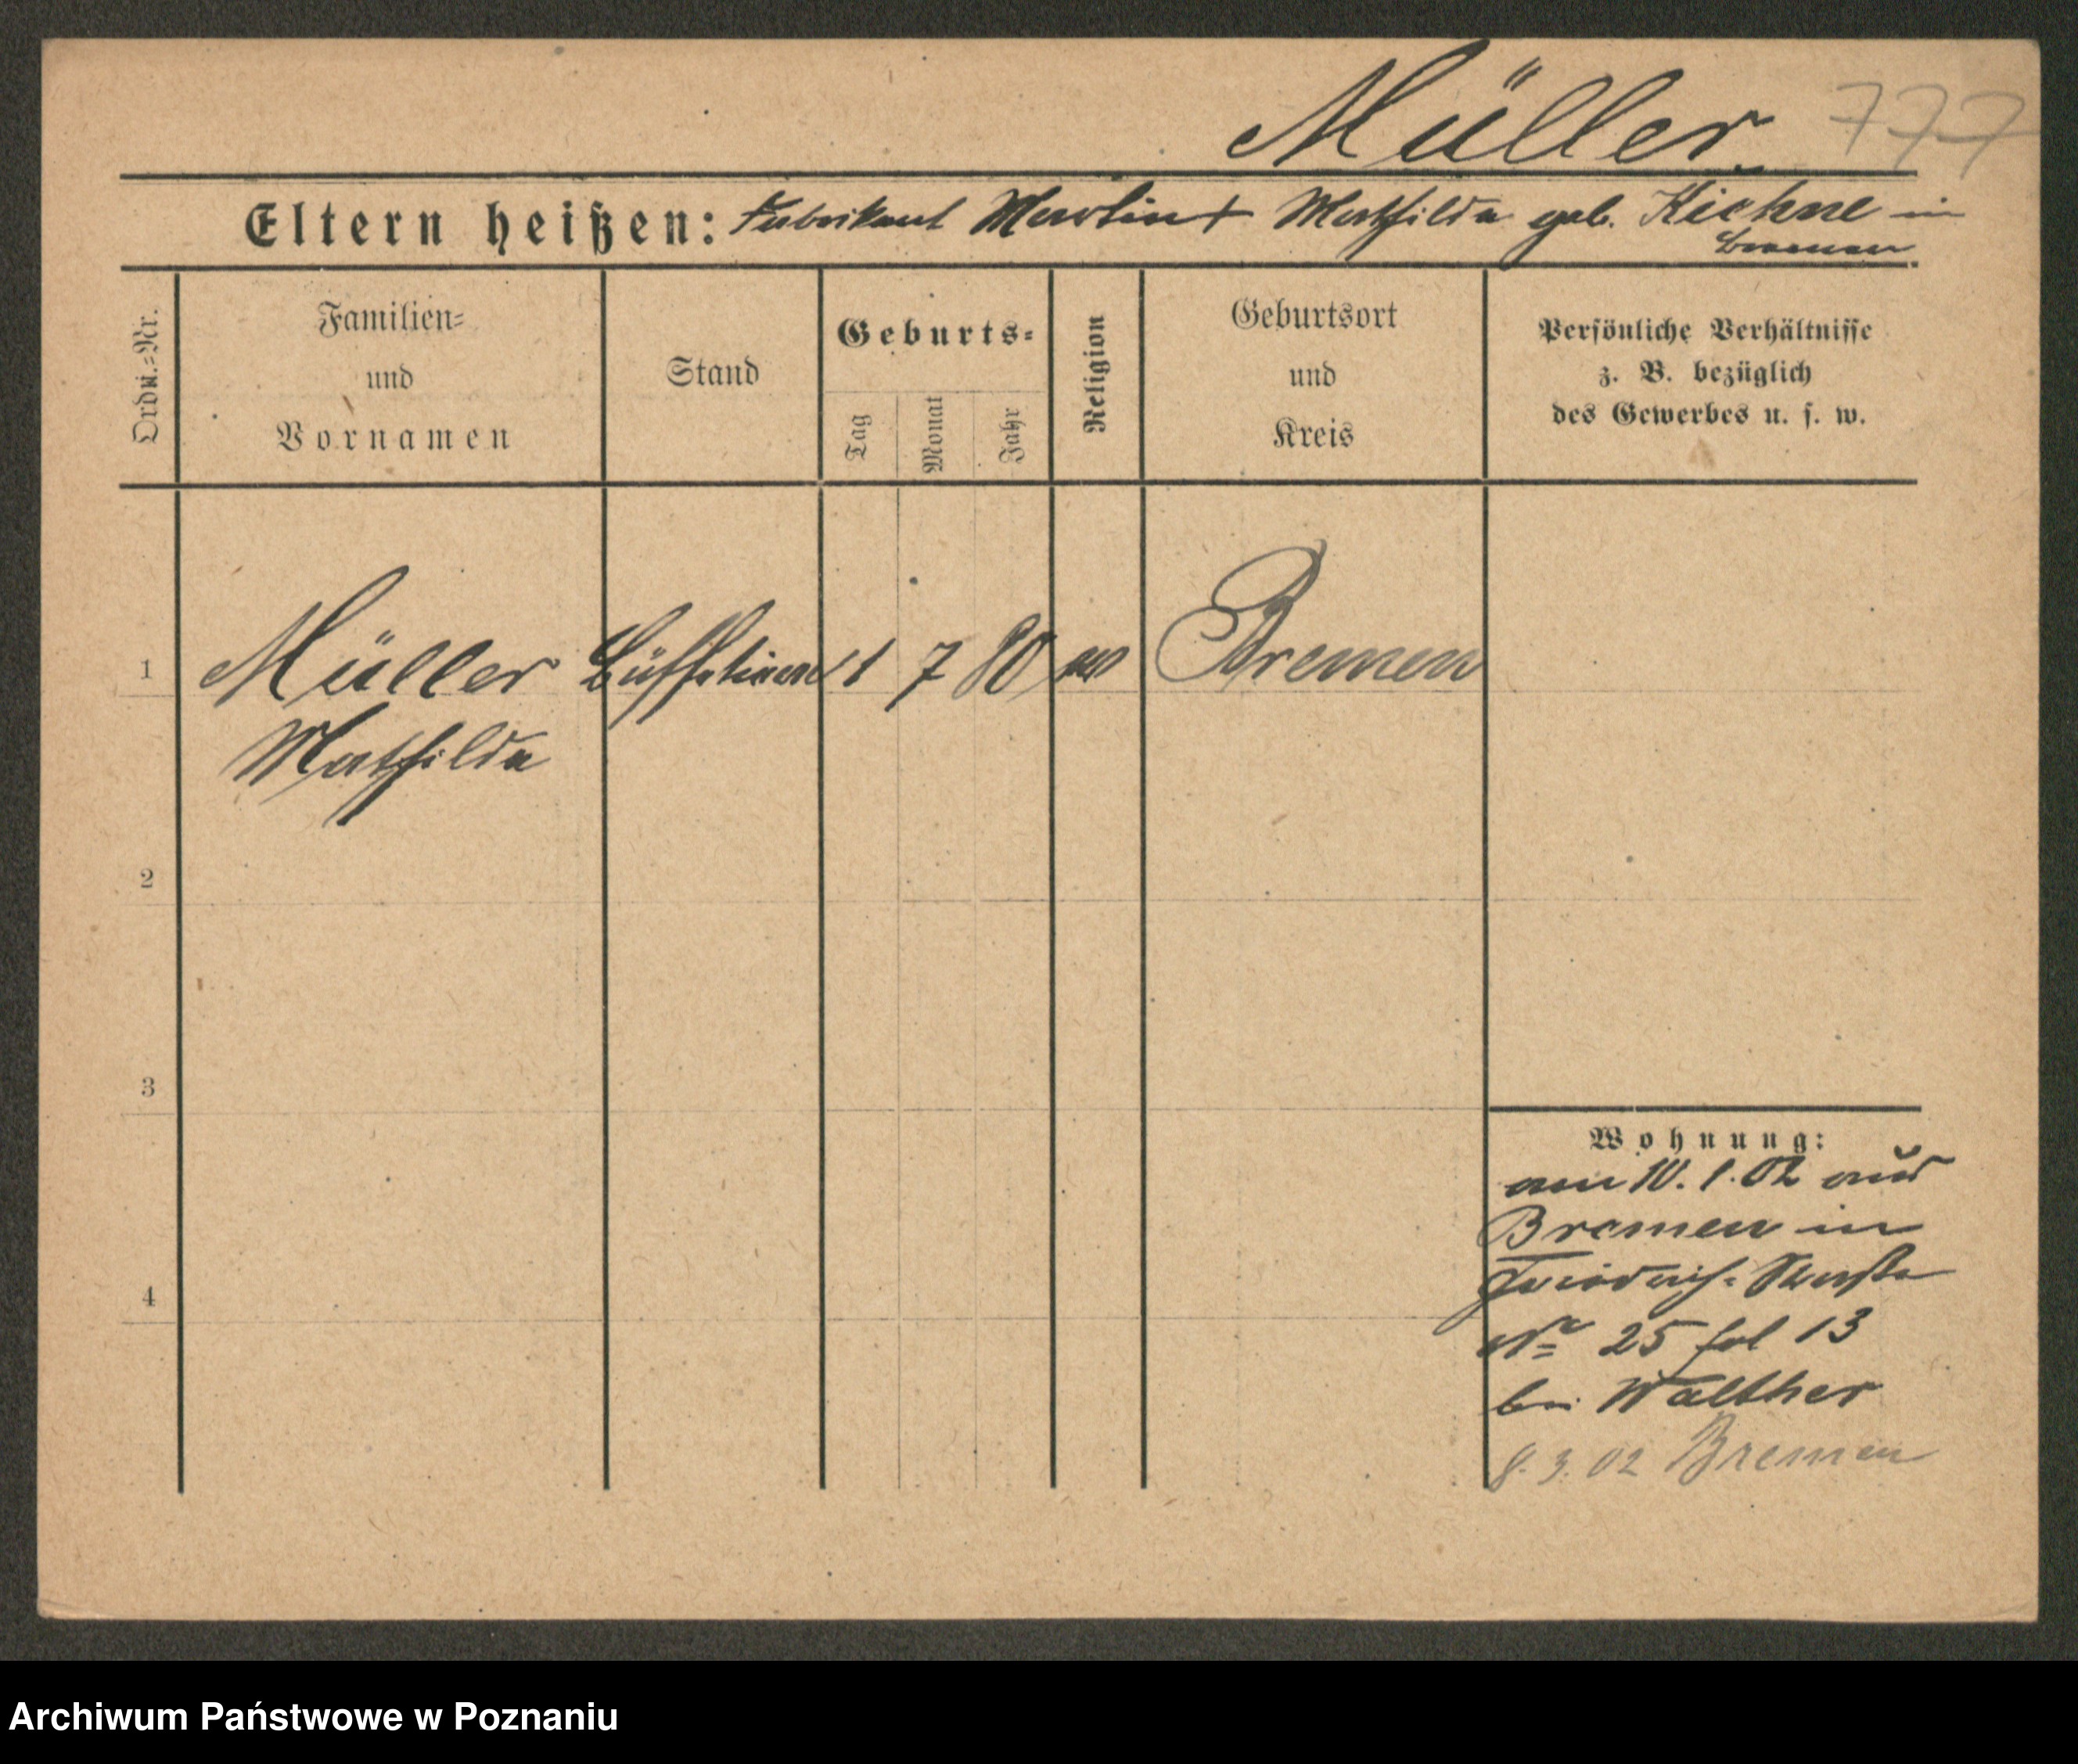 Müller
777
Eltern heißen: Fabrikant Martin † Mathilda geb. Kiehne in
Bremen
Ordn.=Nr.
Familien=
und
Vornamen
Stand
Geburts=
Tag
Monat
Jahr
Religion
Geburtsort
und
Kreis
Persönliche Verhältnisse
z. B. bezüglich
des Gewerbes u. s. w.
1 Müller 1 7 80 Bremen
Mathilda
2
3
4
Wohnung:
am 10. 1. 02 aus
Bremen in
Friedrich=Straße
No 25 fol 13
bei Walther
8. 3. 02 Bremen
Archiwum Państwowe w Poznaniu